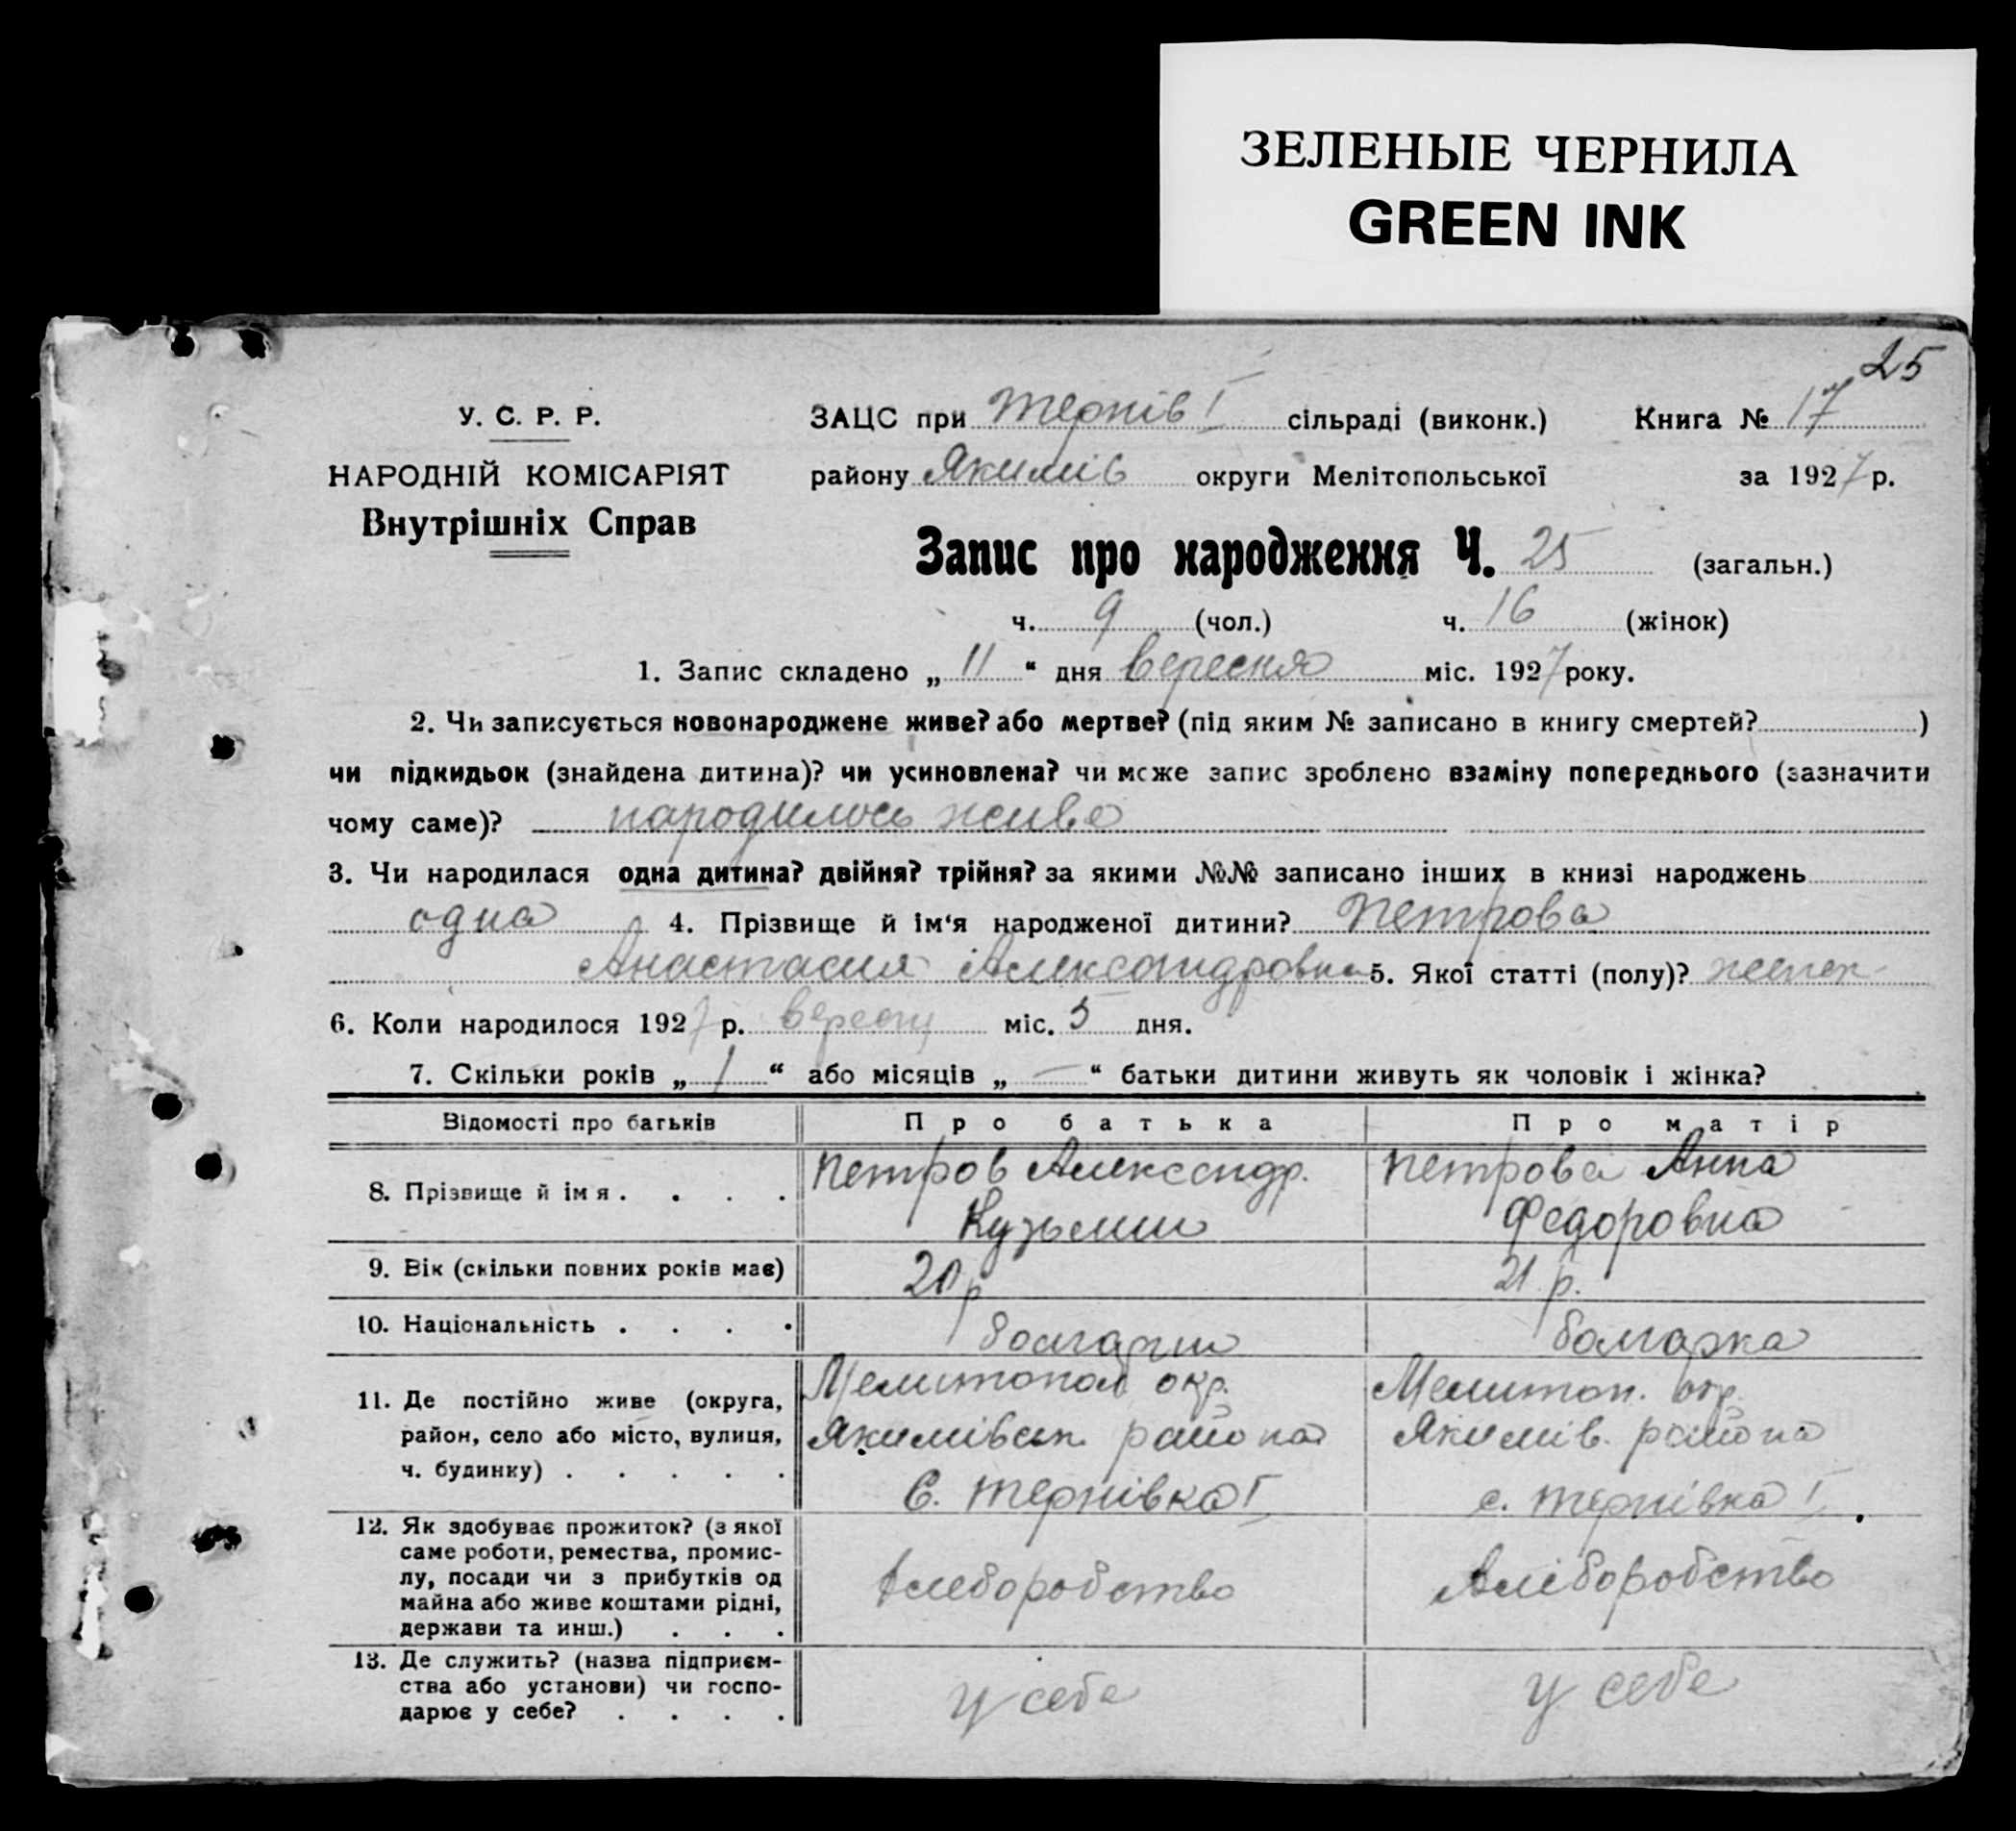 ЗЕЛЕНЫЕ ЧЕРНИЛА
GREEN INK
25
У. С. Р. Р.
НАРОДНІЙ КОМІСАРІЯТ
Внутрішніх Справ
ЗАЦС при Терпів I сільраді (виконк.) Книга № 17
району Якимів округи Мелітопольської за 1927 р.
Запис про народження Ч. 25 (загальн.)
ч. 9 (чол.) ч. 16 (жінок)
1. Запис складено „ 11 “ дня вересня міс. 1927 року.
2. Чи записується новонароджене живе? або мертве? (під яким № записано в книгу смертей? )
чи підкидьок (знайдена дитина)? чи усиновлена? чи може запис зроблено взаміну попереднього (зазначити
чому саме)? народилось живе
3. Чи народилася одна дитина? двійня? трійня? за якими №№ записано інших в книзі народжень
одна 4. Прізвище й ім‘я народженої дитини? Петрова
Анастасия Александровна 5. Якої статті (полу)? женск.
6. Коли народилося 1927 р. міс. 5 дня.
7. Скільки років „ 1 “ або місяців „ — “ батьки дитини живуть як чоловік і жінка?
Відомості про батьків Про батька Про матір
8. Прізвище й імя . . . . Петров Александр. Петрова Анна
Кузьмич Федоровна
9. Вік (скільки повних років має) 20 р 21 р.
10. Національність . . . . болгарин болгарка
11. Де постійно живе (округа, Мелитопол окр. Мелитоп. окр.
район, село або місто, вулиця, Якимівск района Якимів. района
ч. будинку) . . . . . С. Терпівка I с. Терпівка I
12. Як здобуває прожиток? (з якої
саме роботи, ремества, промис-
лу, посади чи з прибутків од Хлеборобство Хліборобство
майна або живе коштами рідні,
держави та инш.) . . .
13. Де служить? (назва підприєм-
ства або установи) чи госпо- у себе у себе
дарює у себе? . . . .